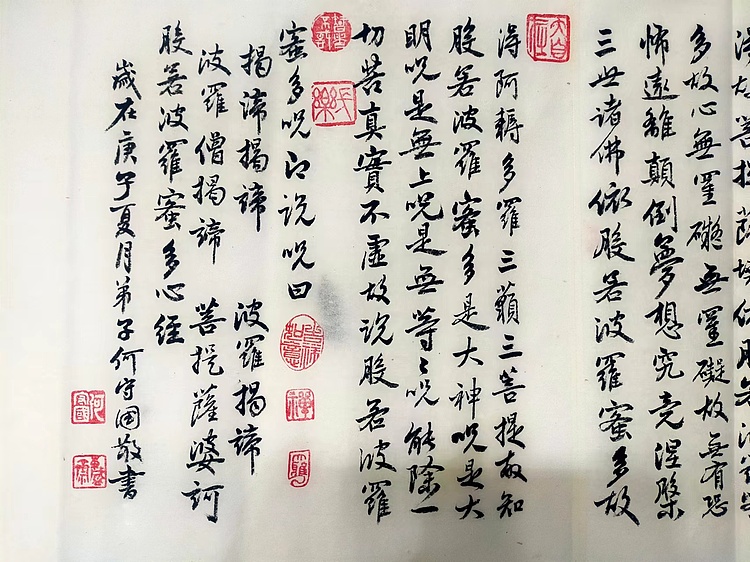 得故菩提薩埵依般若波羅蜜
多故心無罣礙無罣礙故無有恐
怖遠離顛倒夢想究竟涅槃
三世諸佛依般若波羅蜜多故
得阿耨多羅三藐三菩提故知
般若波羅蜜多是大神呪是大
明呪是無上呪是無等〻呪能除一
切苦真實不虛故說般若波羅
蜜多呪即說呪曰
揭諦揭諦 波羅揭諦
波羅僧揭諦 菩提薩婆訶
般若波羅蜜多心經
歲在庚子夏月弟子何守國敬書
大自在
吉祥如意
禪